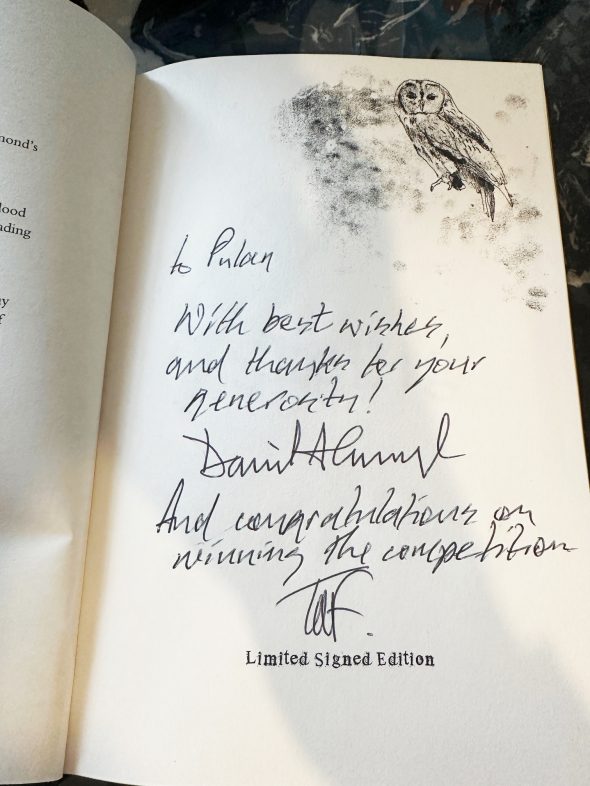 mond's
lood
ading
y
f
to Pulan
With best wishes,
and thanks for your
generosity!
David Almond
And congratulations on
winning the competition
Limited Signed Edition